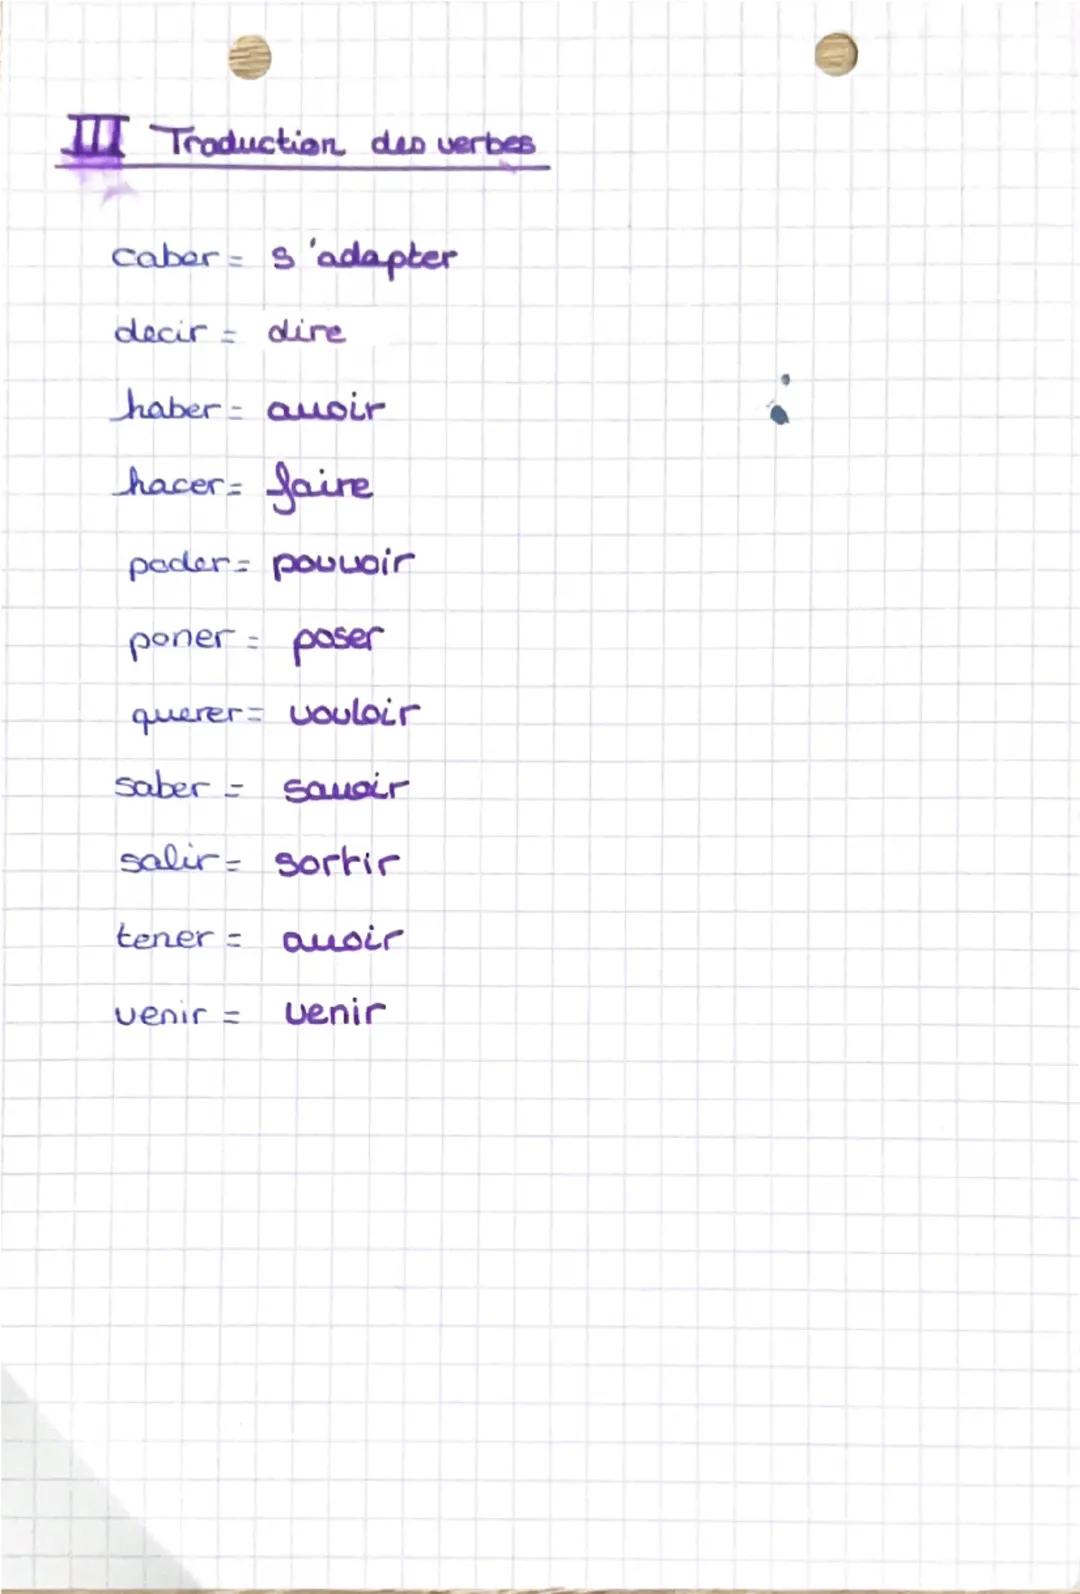 III Traduction des verbes
caber = s'adapter
decir = dire
haber = avoir
hacer = faire
poder = pouvoir
poner = poser
querer = vouloir
saber = savoir
salir = sortir
tener = avoir
venir = venir